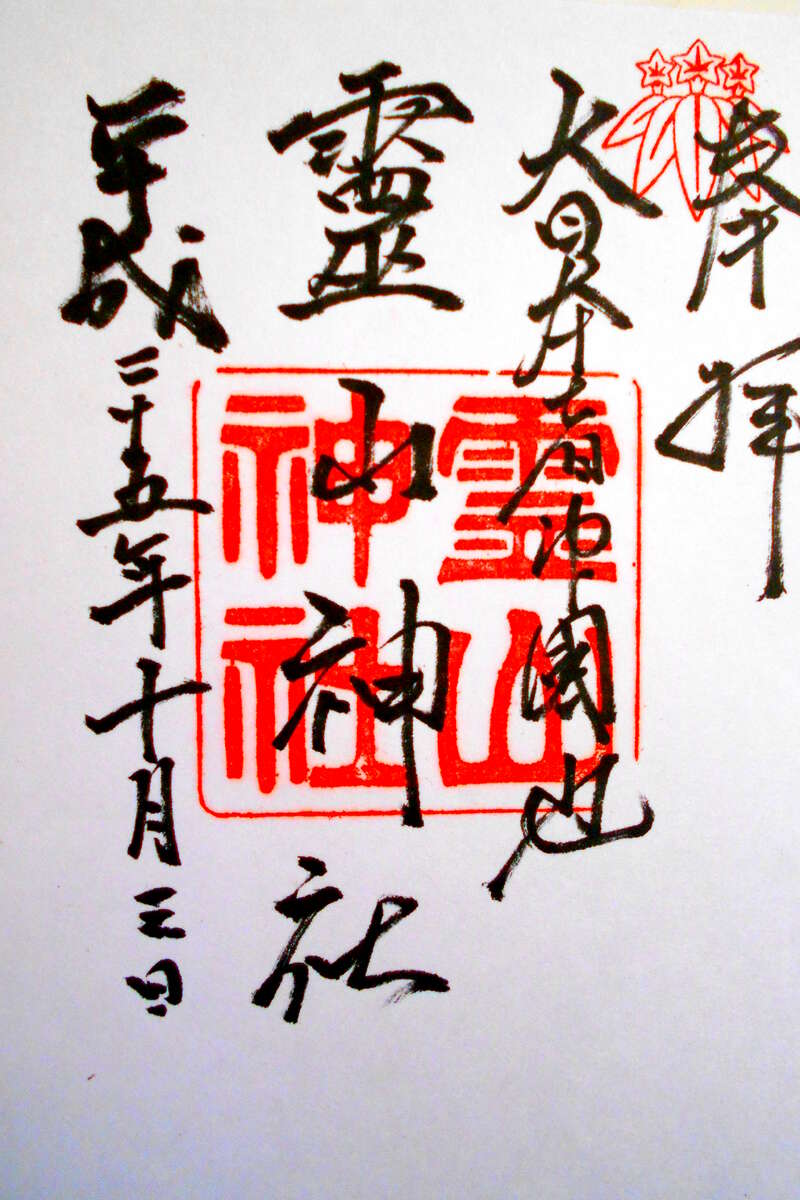 奉拝
大日本者神國也
靈山神社
平成二十五年十月三日
霊山
神社